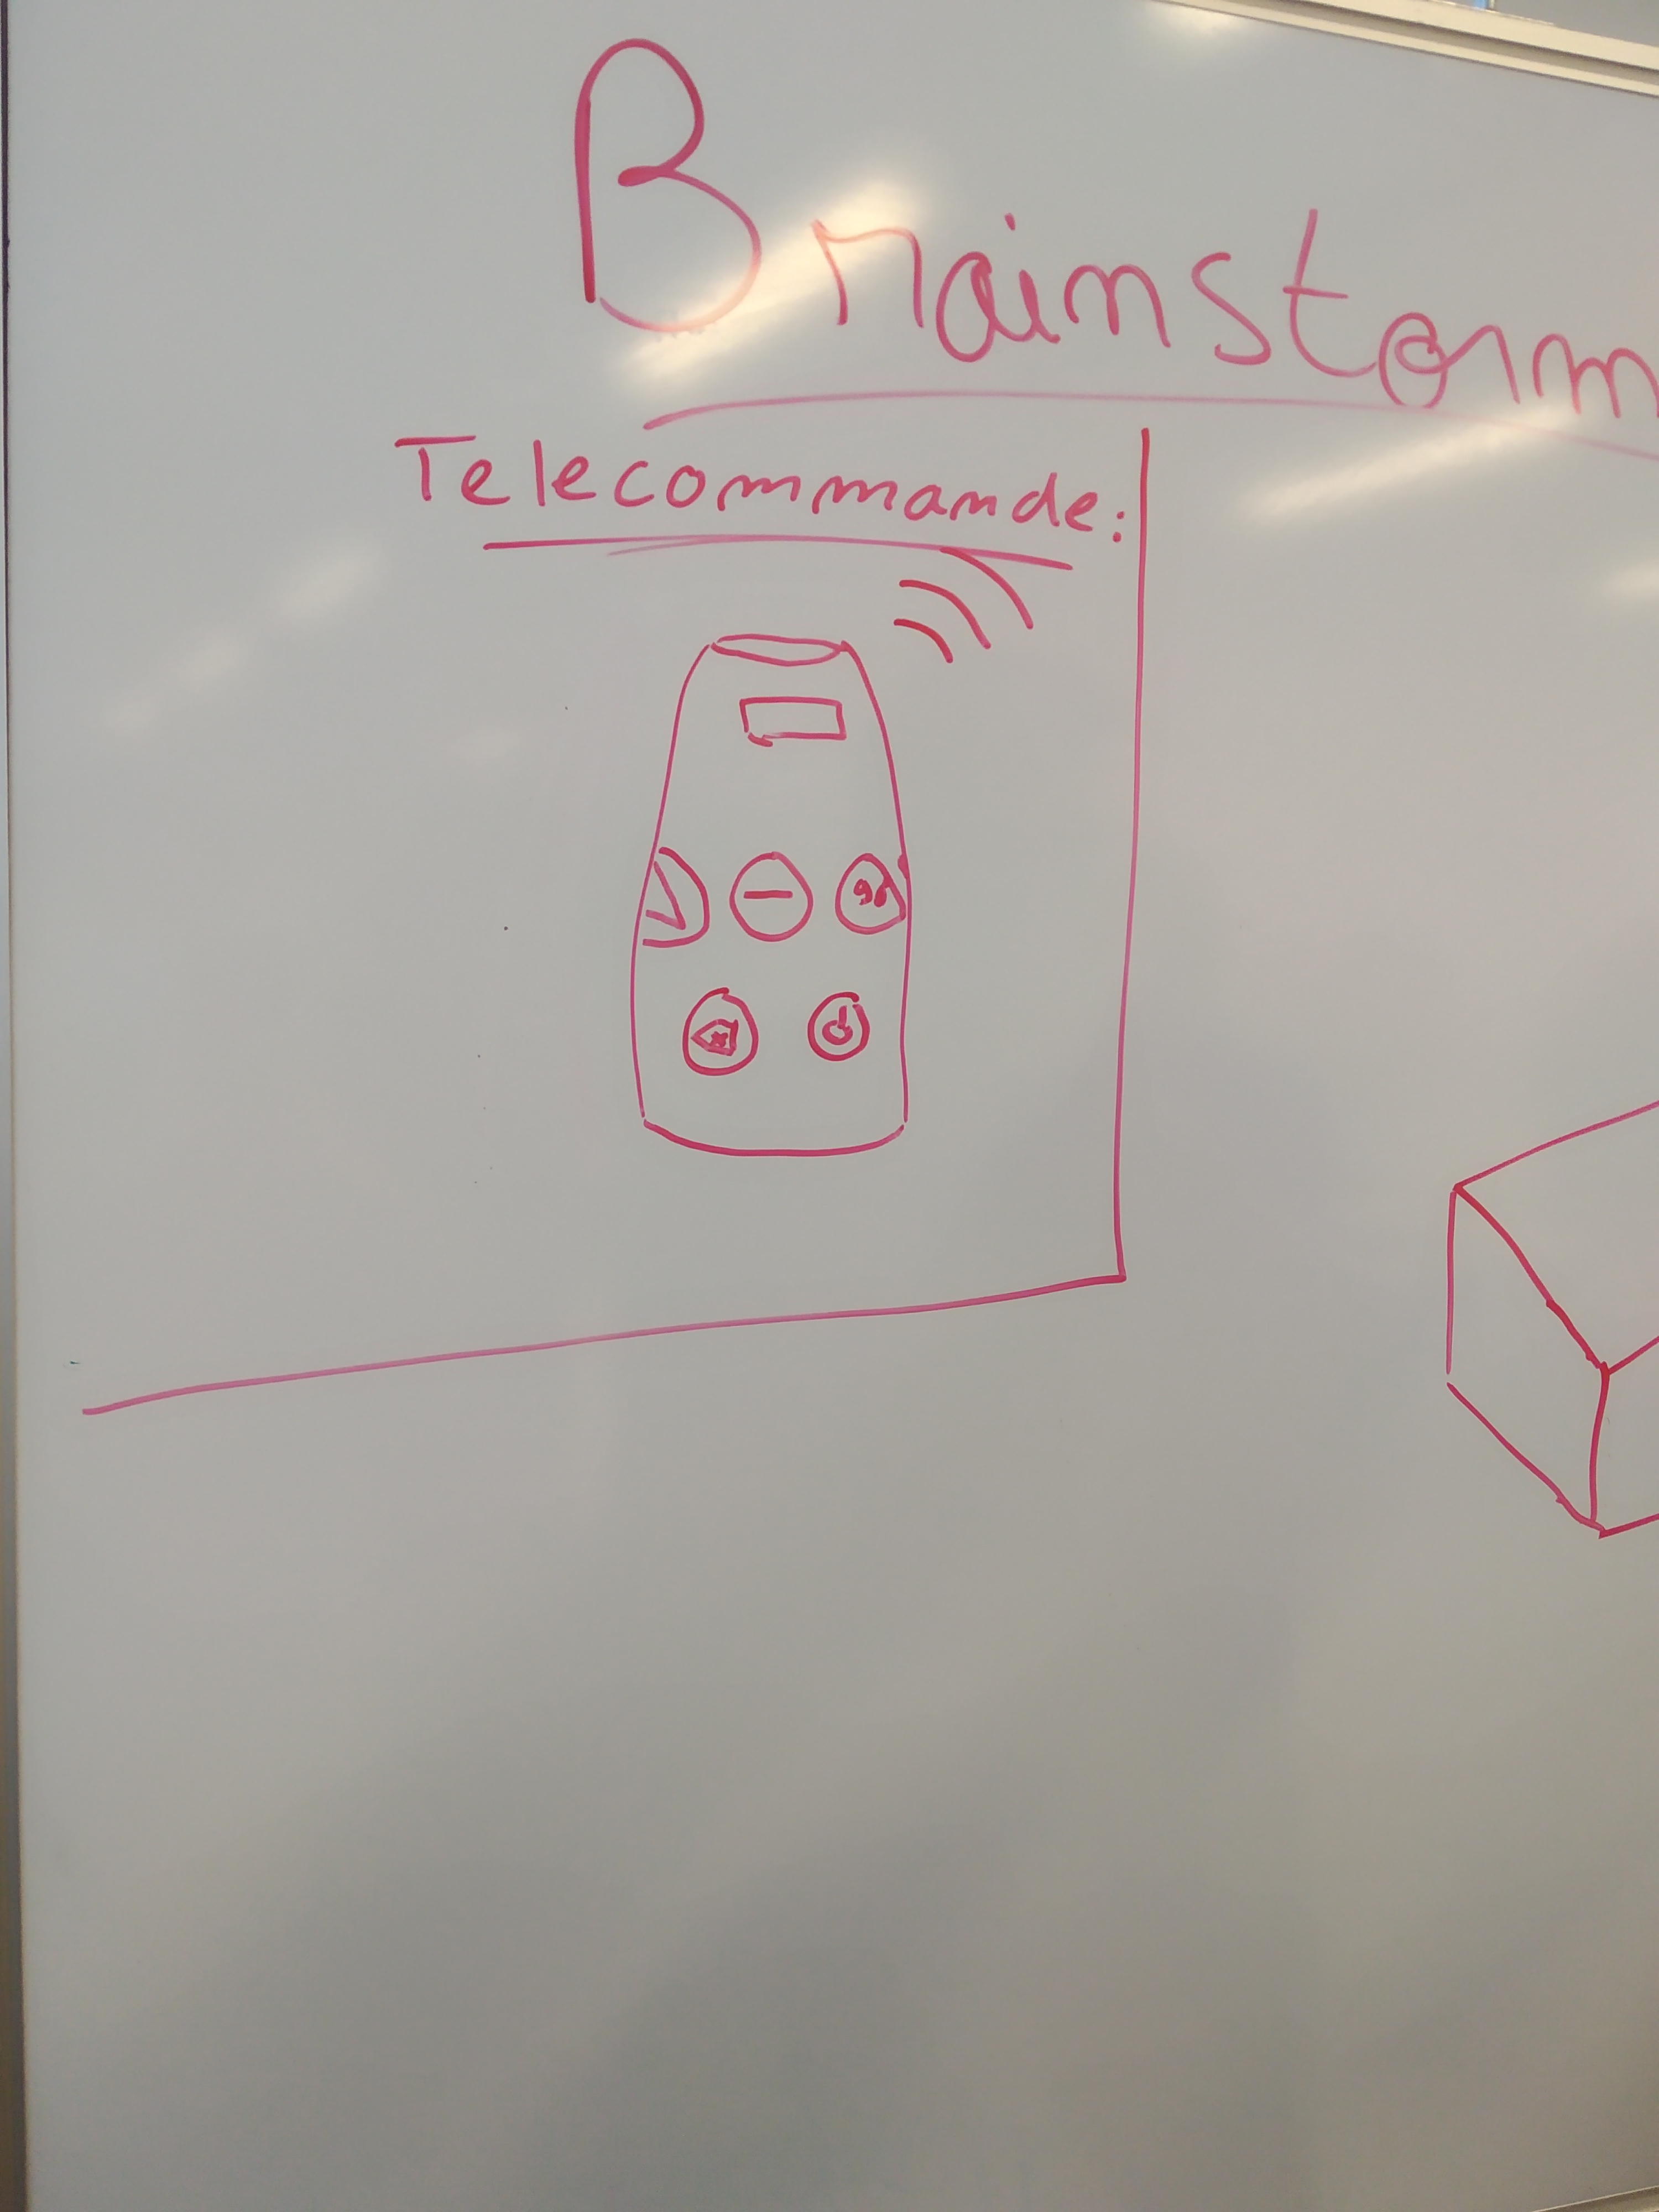 Brainstorm
Telecommande: